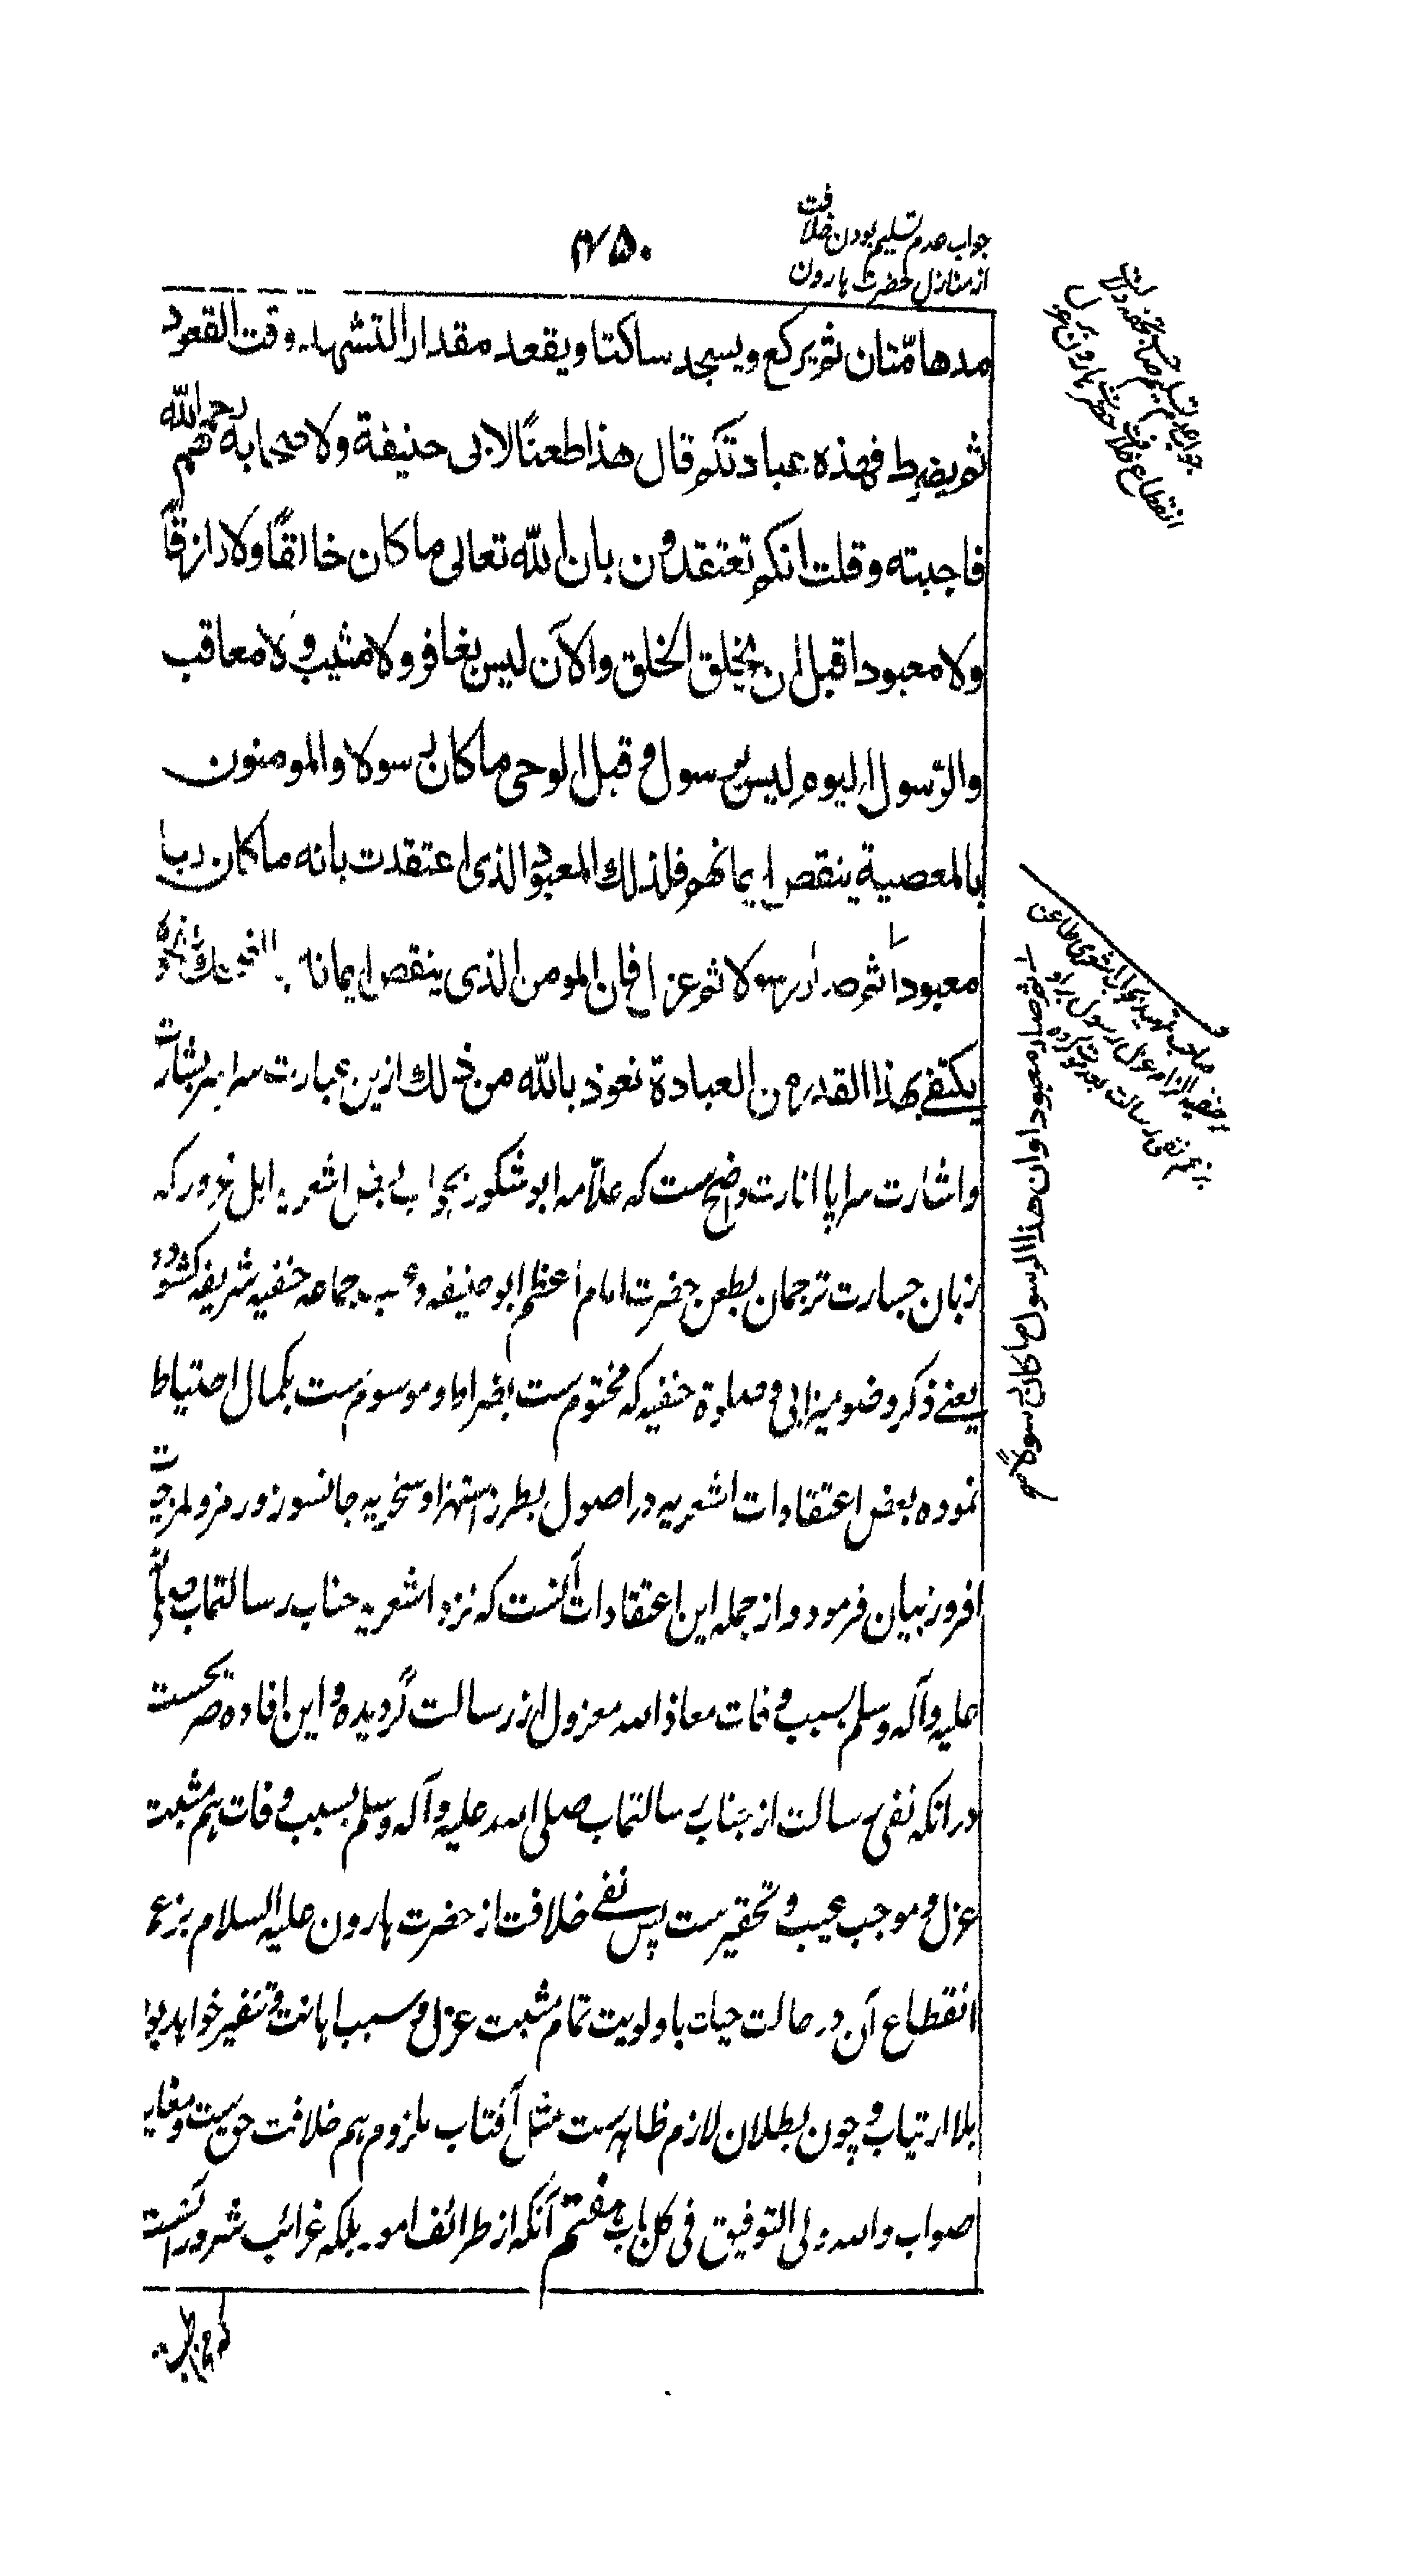 جواب عدم تسلیم بودن خلافت
از منازل حضرت هارون
۷۵۰
مدهامّتان ثم یرکع و یسجد ساکتا و یقعد مقدار التشهد وقت القعود
ثم یضرط فهذه عبادتکم قال هذا طعنًا لابی حنیفة ولاصحابه رحمهم الله
فاجبته و قلت انکم تعتقدون بان الله تعالی ما کان خالقًا ولا رازقًا
ولا معبودا قبل ان یخلق الخلق والآن لیس بغافر ولا مثیب ولا معاقب
والرّسول الیوم لیس برسول و قبل الوحی ما کان رسولا والمومنون
بالمعصیة ینقص ایمانهم فلذلك المعبود الذی اعتقدت بانه ما کان ربا
معبوداً ثم صار رسولا ثم عزل فان المومن الذی ینقص ایمانه
یکتفی بهذا القدر من العبادة نعوذ بالله من ذلك ازین عبارت سراسر بشارت
و اشارت سراپا انارت واضح ست که علّامه ابو شکور بجواب بعض اشعریه اهل غرور که
زبان جسارت ترجمان بطعن حضرت امام اعظم ابو حنیفه و جماعه حنفیه شریفه کشوده
یعنے ذکر وضو میزابی و صلوة حنفیه که مختوم ست بضراط و موسوم ست بکمال احتیاط
نموده بعض اعتقادات اشعریه در اصول بطرز استهزا و سخریه جانسوز و رمز و لمز حیرت
افروز بیان فرموده و از جمله این اعتقادات آنست که نزد اشعریه جناب رسالتماب صلی الله
علیه و آله و سلم بسبب وفات معاذ الله معزول از رسالت گردیده و این افاده صریحست
در انکه نفی رسالت از جناب رسالتماب صلی الله علیه و آله و سلم بسبب وفات هم مثبت
عزل و موجب عیب و تحقیر ست پس نفے خلافت از حضرت هارون علیه السلام بزعم
انقطاع آن در حالت حیات باولویت تمام مثبت عزل و سبب اهانت و تنفیر خواهد بود
بلا ارتیاب و چون بطلان لازم ظاهر ست مثل آفتاب ملزوم هم خلافت حق ست و مغایر
صواب والله ولی التوفیق فی کل باب هفتم آنکه از طرائف امور بلکه غرائب شرور آنست
جواب عدم تسلیم صاحب تحفه دلالت
انقطاع خلافت حضرت هارون بر عزل
صاحب تمهید بجواب اشعری طاعن
حنفیه الزام عزل رسول برو
بزعم نفی رسالت بعد موت کرده